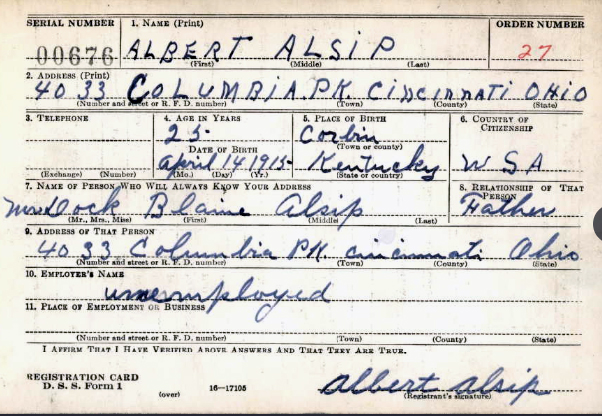 SERIAL NUMBER 1. NAME (Print) ORDER NUMBER
00676 ALBERT ALSIP 27
(First) (Middle) (Last)
2. ADDRESS (Print)
4033 COLUMBIA PK CINCINNATI OHIO
(Number and street or R. F. D. number) (Town) (County) (State)
3. TELEPHONE 4. AGE IN YEARS 5. PLACE OF BIRTH 6. COUNTRY OF CITIZENSHIP
25 Corbin
DATE OF BIRTH (Town or county)
April 14 1915 Kentucky USA
(Exchange) (Number) (Mo.) (Day) (Yr.) (State or country)
7. NAME OF PERSON WHO WILL ALWAYS KNOW YOUR ADDRESS 8. RELATIONSHIP OF THAT PERSON
Mr Dock Blaine Alsip Father
(Mr., Mrs., Miss) (First) (Middle) (Last)
9. ADDRESS OF THAT PERSON
4033 Columbia PK. cincinnati Ohio
(Number and street or R. F. D. number) (Town) (County) (State)
10. EMPLOYER'S NAME
unemployed
11. PLACE OF EMPLOYMENT OR BUSINESS
(Number and street or R. F. D. number) (Town) (County) (State)
I AFFIRM THAT I HAVE VERIFIED ABOVE ANSWERS AND THAT THEY ARE TRUE.
REGISTRATION CARD
D. S. S. Form 1 (over) 16—17105 Albert Alsip
(Registrant's signature)